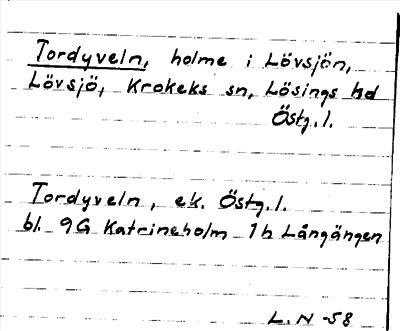 Tordyveln, holme i Lövsjön,
Lövsjö, Krokeks sn, Lösings hd
Östg.l.
Tordyveln, ek. Östg.l.
bl. 9G Katrineholm 1h Långängen
L.N -58